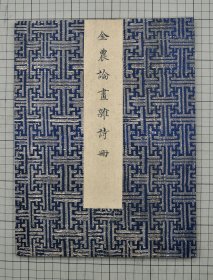 金農論畫雜詩冊